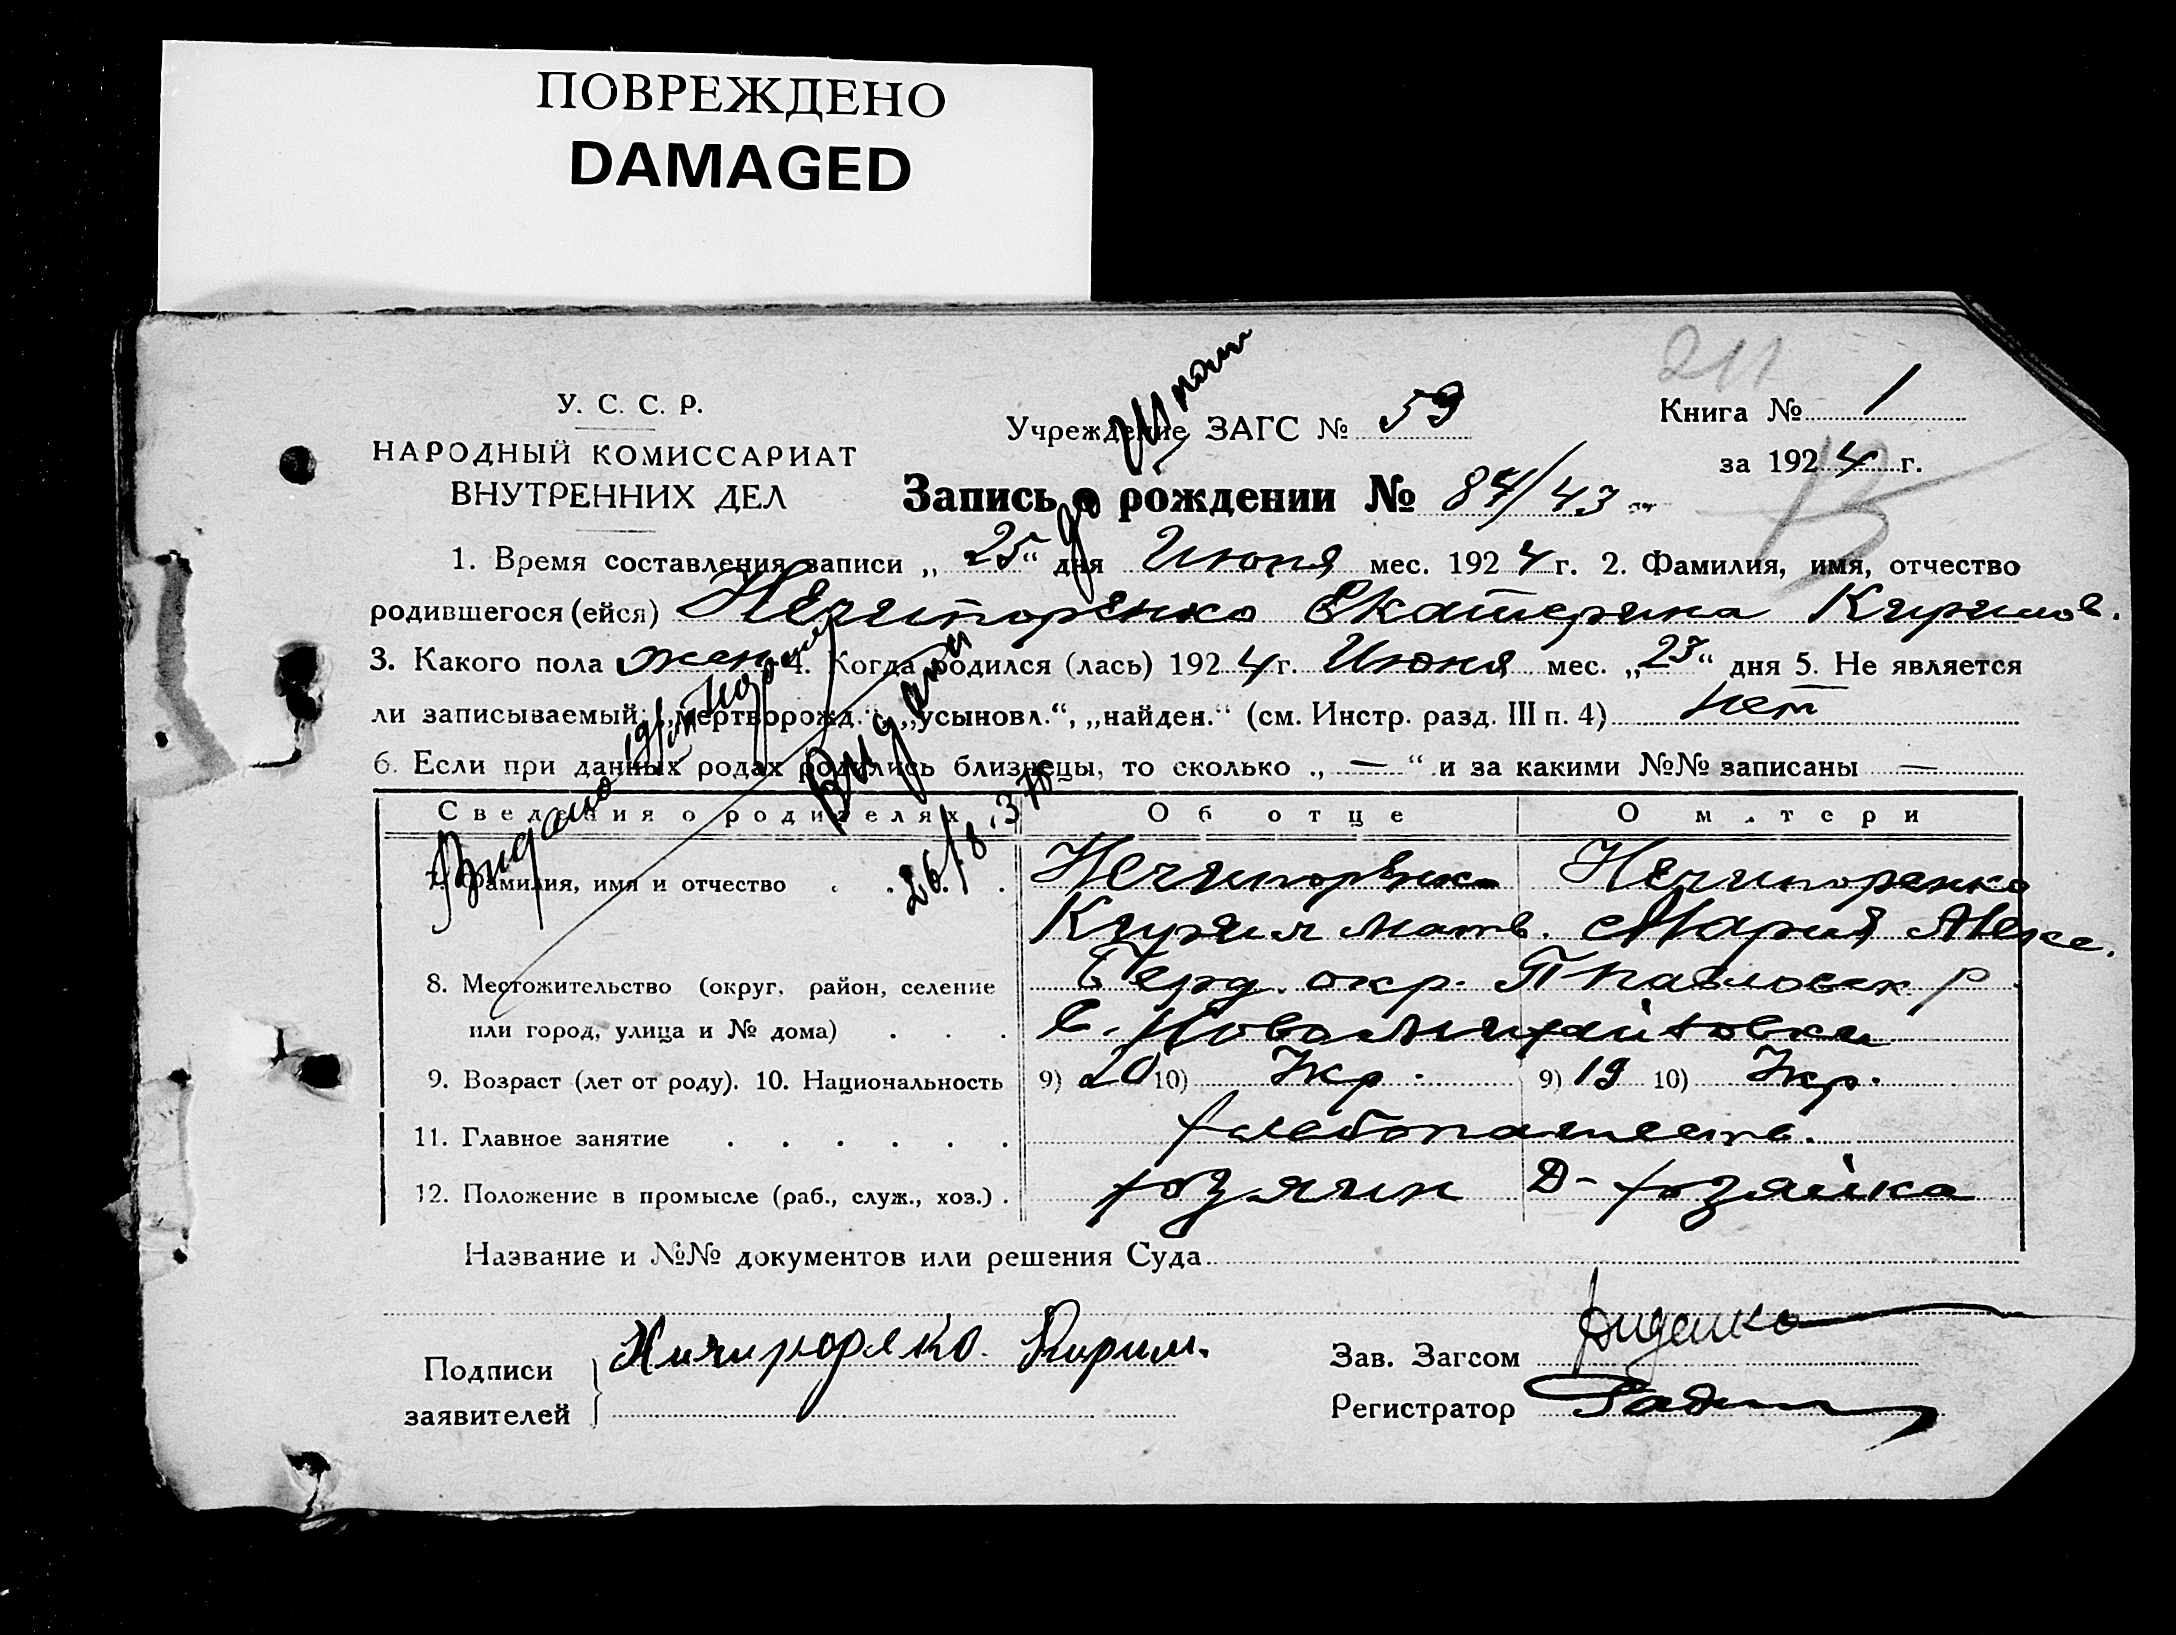 ПОВРЕЖДЕНО
DAMAGED
211
У. С. С. Р.
НАРОДНЫЙ КОМИССАРИАТ
ВНУТРЕННИХ ДЕЛ
Учреждение ЗАГС № 59
Книга № 1
за 1924 г.
13
Запись о рождении № 84/43
1. Время составления записи „25“ дня Июня мес. 1924 г. 2. Фамилия, имя, отчество
родившегося (ейся) Нечипоренко Екатерина Кирилов.
3. Какого пола жен. 4. Когда родился (лась) 1924 г. Июня мес. „23“ дня 5. Не является
ли записываемый: „мертворожд.“, „усыновл.“, „найден.“ (см. Инстр. разд. III п. 4) нет
6. Если при данных родах родились близнецы, то сколько „—“ и за какими №№ записаны —
Сведения о родителях Об отце О матери
7. Фамилия, имя и отчество Нечипоренко Нечипоренко
Кирил Матв. Мария Алекс.
8. Местожительство (округ, район, селение Берд. окр. П павловск р
или город, улица и № дома) С. Ново Михайловки
9. Возраст (лет от роду). 10. Национальность 9) 20 10) Укр. 9) 19 10) Укр.
11. Главное занятие хлебопашеств.
12. Положение в промысле (раб., служ., хоз.) хозяин Д-хозяйка
Название и №№ документов или решения Суда
Подписи
заявителей
Кирил.
Зав. Загсом
Регистратор
Видано
26/8.37